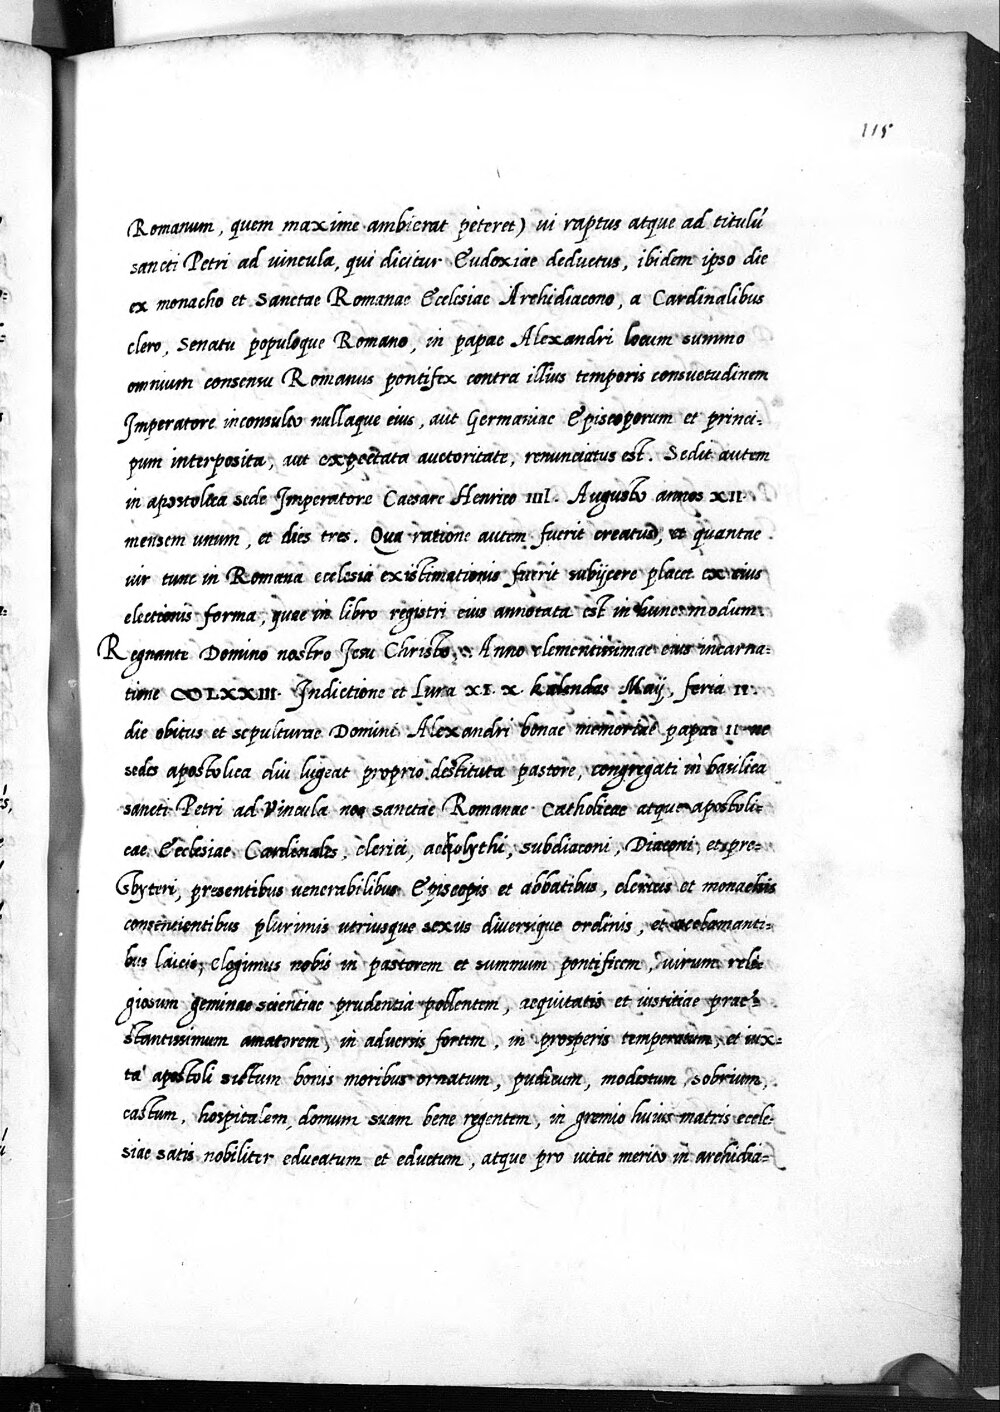 115
Romanum, quem maxime ambierat peteret) ui raptus atque ad titulū
sancti Petri ad uincula, qui dicitur Eudoxiae deductus, ibidem ipso die
ex monacho et Sanctae Romanae Ecclesiae Archidiacono, a Cardinalibus
clero, Senatu populoque Romano, in papae Alexandri locum summo
omnium consensu Romanus pontifex contra illius temporis consuetudinem
Imperatore inconsulto nullaque eius, aut Germaniae Episcoporum et princi-
pum interposita, aut expectata auctoritate, renunciatus est. Sedit autem
in apostolica sede Imperatore Caesare Henrico IIII. Augusto annos XII
mensem unum, et dies tres. Qua ratione autem fuerit creatus, et quantae
uir tunc in Romana ecclesia existimationis fuerit subijcere placet ex eius
electionis forma, quae in libro registri eius annotata est in hunc modum:
Regnante Domino nostro Jesu Christo, Anno clementissimae eius incarna-
tione ↀLXXIII Indictione et Luna XI. X. kalendas Maij, feria II.
die obitus et sepulturae Domini Alexandri bonae memoriae papae II ne
sedes apostolica diu lugeat proprio destituta pastore, congregati in basilica
sancti Petri ad Vincula nos sanctae Romanae Catholicae atque apostoli-
cae Ecclesiae Cardinales, clerici, acholythi, subdiaconi, Diaconi, et pre-
sbyteri, presentibus uenerabilibus Episcopis et abbatibus, clericis et monachis
consentientibus plurimis utriusque sexus diuersique ordinis, et acclamanti-
bus laicis, elogimus nobis in pastorem et summum pontificem, uirum reli-
giosum geminae scientiae prudentia pollentem, aequitatis et iustitiae prae-
stantissimum amatorem, in aduersis fortem, in prosperis temperatum, et iux-
ta apostoli dictum bonis moribus ornatum, pudicum, modestum, sobrium,
castum, hospitalem, domum suam bene regentem, in gremio huius matris eccle-
siae satis nobiliter educatum et eductum, atque pro uitae merito in archidia-